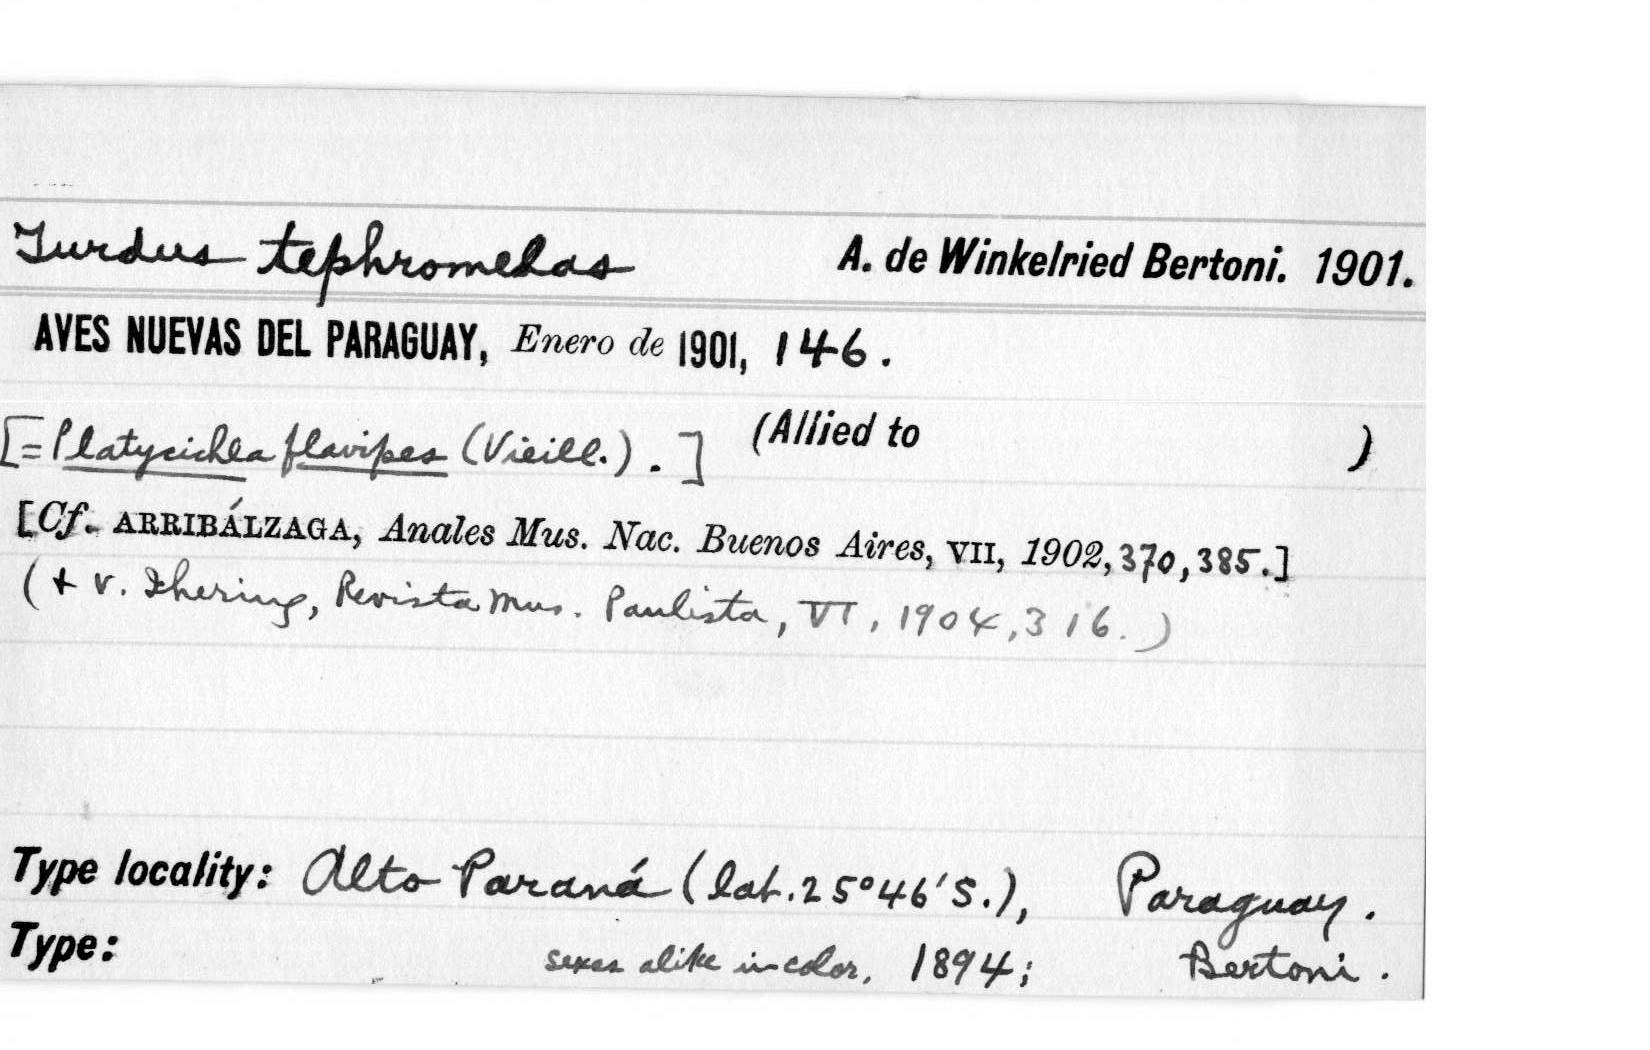 Turdus tephromelas A. de Winkelried Bertoni. 1901.
AVES NUEVAS DEL PARAGUAY, Enero de 1901, 146.
[=Platycichla flavipes (Vieill.).] (Allied to )
[Cf. ARRIBÁLZAGA, Anales Mus. Nac. Buenos Aires, VII, 1902, 370, 385.]
(+ v. Ihering, Revista Mus. Paulista, VI, 1904, 316.)
Type locality: Alto Paraná (lat. 25°46'S.), Paraguay.
Type: sexes alike in color, 1894; Bertoni.